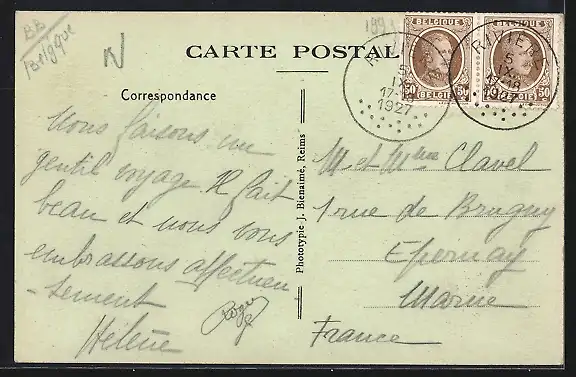 BB
Belgique
N
CARTE POSTALE
Correspondance
BELGIQUE
50 50
BELGIE
BELGIQUE
50 50
BELGIE
5
IX
17-18
1927
5
IX
17-18
1927
Phototypie J. Bienaimé, Reims
Nous faisons un
gentil voyage Il fait
beau et nous vous
embrassons affectueu
-sement
Hélène
Roger
M et Mme Clavel
1 rue de Brugny
Epernay
Marne
France